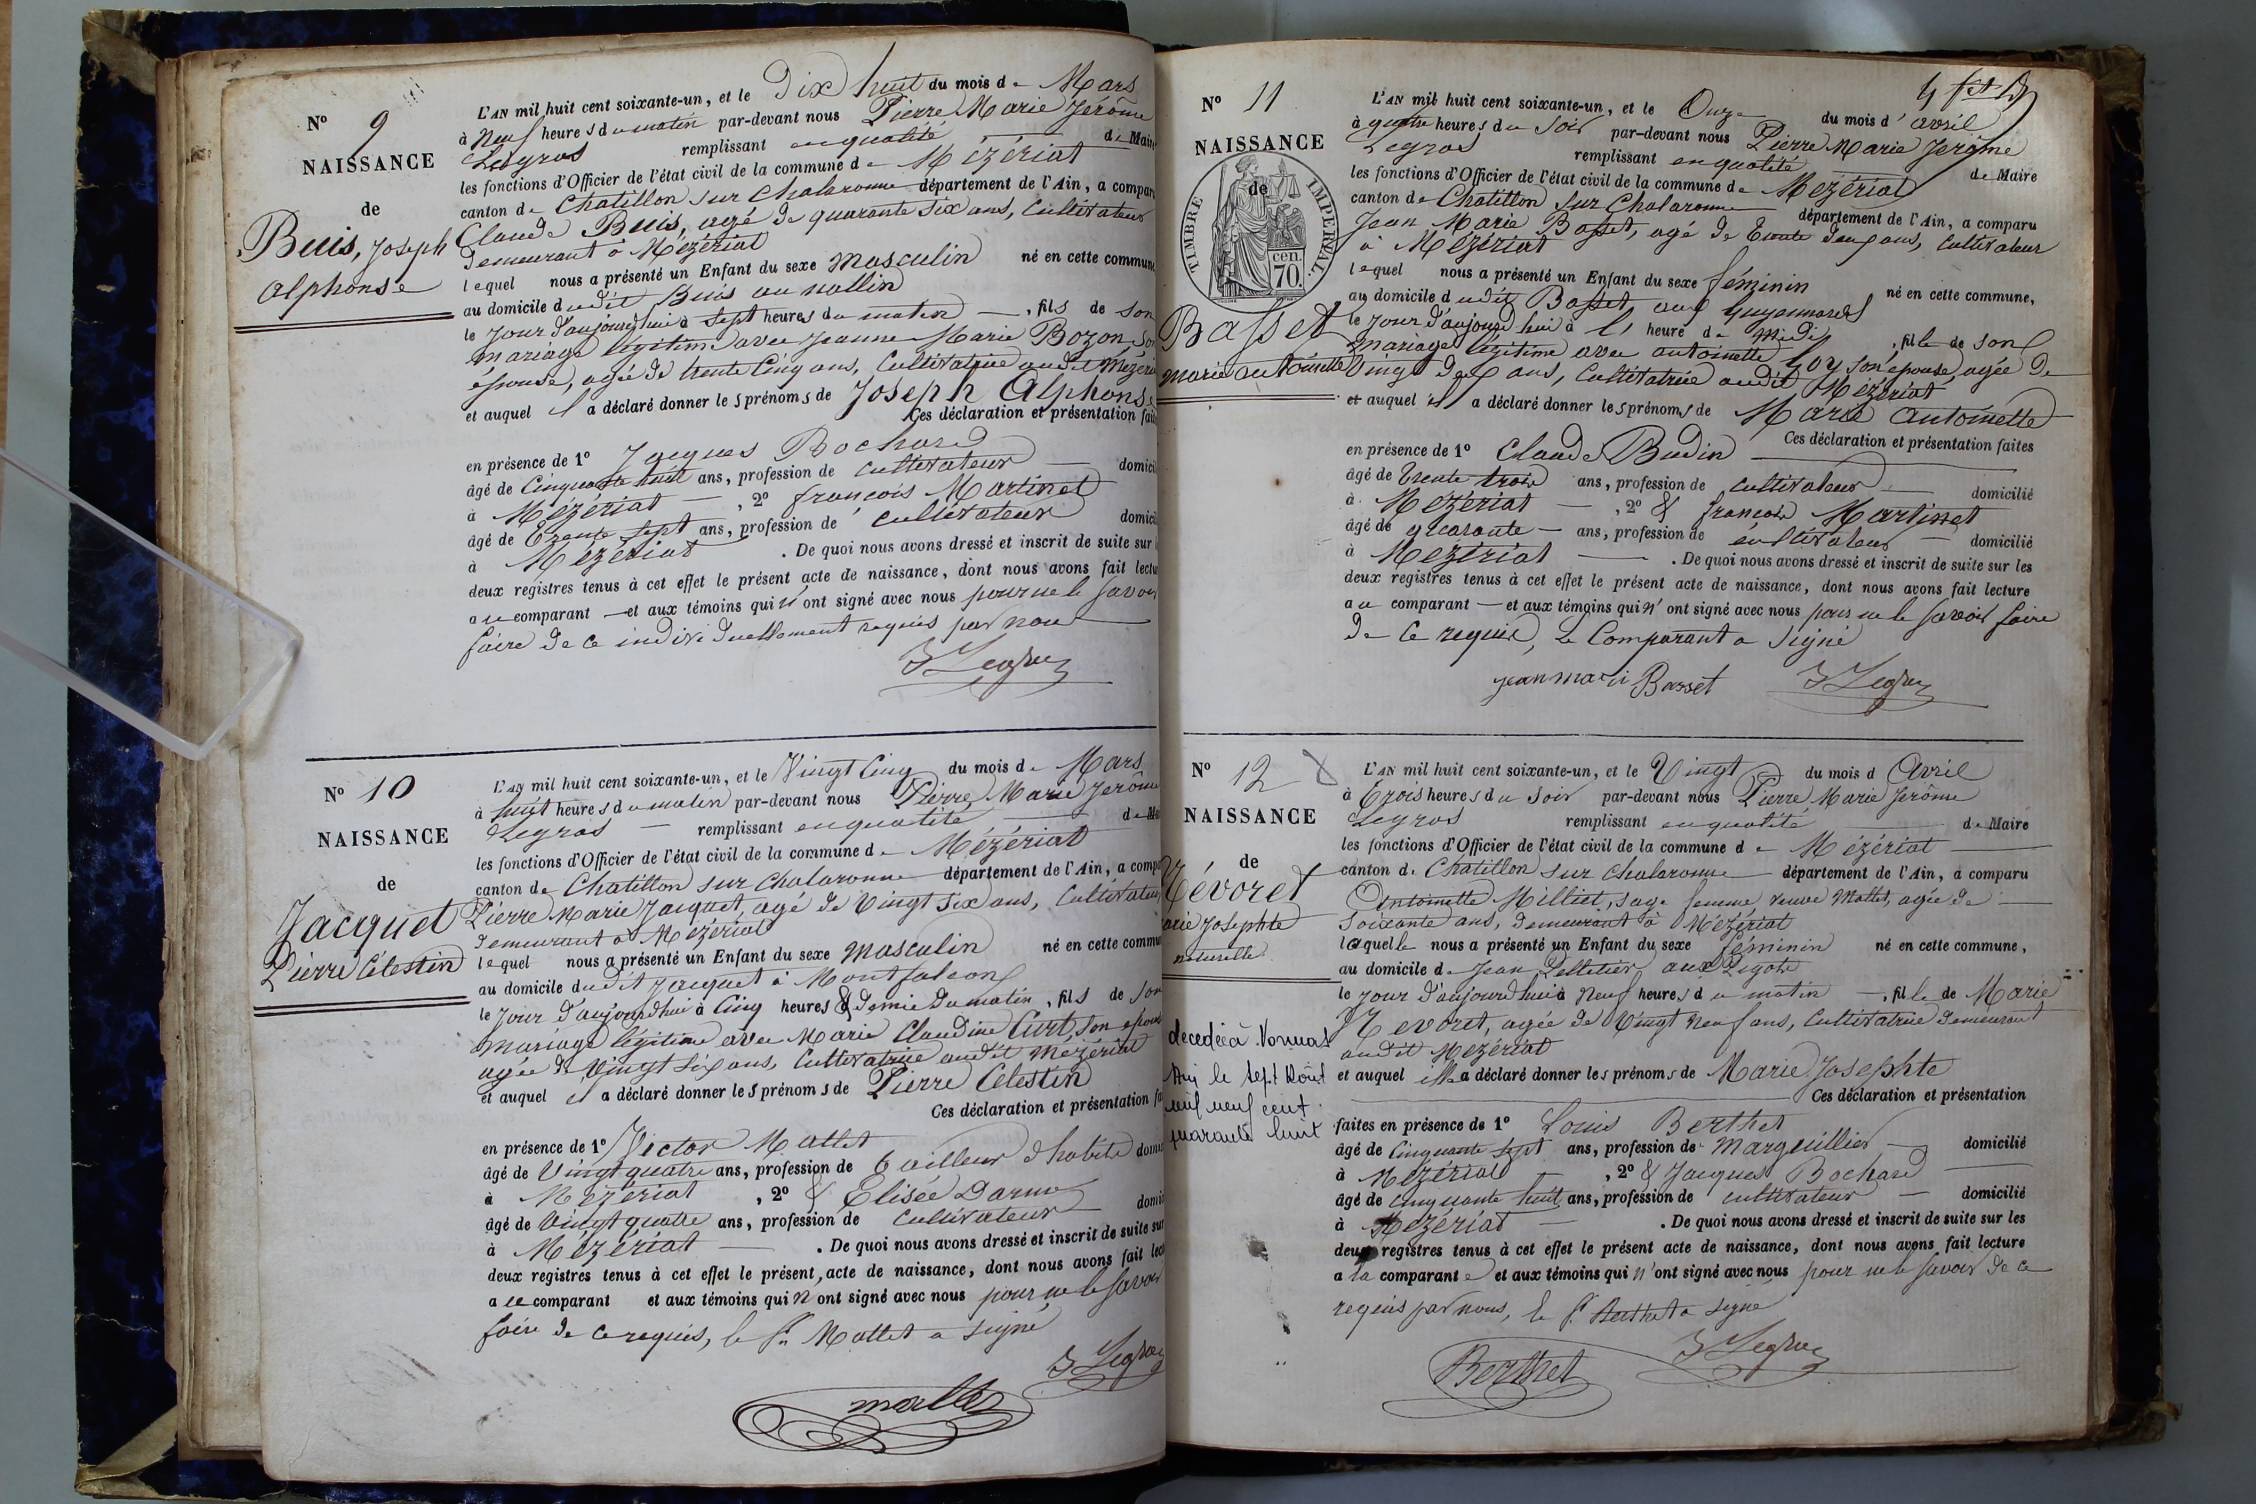 N° 9
NAISSANCE
de
Buis, Joseph
Alphonse
L'AN mil huit cent soixante-un, et le Dix huit du mois de Mars
à Neuf heures du matin par-devant nous Pierre Marie Jérôme
Legros remplissant en qualité de Maire
les fonctions d'Officier de l'état civil de la commune de Mézériat
canton de Chatillon sur Chalaronne département de l'Ain, a comparu
Claude Buis, agé de quarante six ans, Cultivateur
demeurant à Mézériat
lequel nous a présenté un Enfant du sexe masculin né en cette commune
au domicile dudit Buis au
le Jour d'aujourd'hui à Sept heures du matin, fils de son
mariage légitime avec Jeanne Marie Bozon son
épouse, agée de trente Cinq ans, Cultivatrice audit Mézériat
et auquel il a déclaré donner les prénoms de Joseph Alphonse
Ces déclaration et présentation faites
en présence de 1° Jacques Bochard
âgé de Cinquante huit ans, profession de Cultivateur domicilié
à Mézériat, 2° françois Martinet
âgé de Trente Sept ans, profession de Cultivateur domicilié
à Mézériat. De quoi nous avons dressé et inscrit de suite sur
deux registres tenus à cet effet le présent acte de naissance, dont nous avons fait lecture
au comparant et aux témoins qui n'ont signé avec nous pour ne le savoir
faire de ce individuellement requis par nous
J Legros
N° 10
NAISSANCE
de
Jacquet
Pierre Célestin
L'AN mil huit cent soixante-un, et le Vingt Cinq du mois de Mars
à huit heures du matin par-devant nous Pierre Marie Jerôme
Legros remplissant en qualité de Maire
les fonctions d'Officier de l'état civil de la commune de Mézériat
canton de Chatillon sur Chalaronne département de l'Ain, a comparu
Pierre Marie Jacquet, agé de Vingt Six ans, Cultivateur
demeurant à Mézériat
lequel nous a présenté un Enfant du sexe masculin né en cette commune
au domicile dudit Jacquet à Montfalcon
le Jour d'aujourd'hui à Cinq heures & demie du matin, fils de son
mariage légitime avec Marie Claudine Curt, son épouse
agée de Vingt Six ans, Cultivatrice audit Mézériat
et auquel il a déclaré donner les prénoms de Pierre Célestin
Ces déclaration et présentation faites
en présence de 1° Victor Mallet
âgé de Vingt quatre ans, profession de Tailleur d'habits domicilié
à Mézériat, 2° & Elisée Darme
âgé de Vingt quatre ans, profession de Cultivateur domicilié
à Mézériat. De quoi nous avons dressé et inscrit de suite sur
deux registres tenus à cet effet le présent acte de naissance, dont nous avons fait lecture
au comparant et aux témoins qui n'ont signé avec nous pour ne le savoir
faire de ce requis, le Sr. Mallet a signé
J Legros
mallet
4 fet
N° 11
NAISSANCE
de
TIMBRE IMPERIAL.
70. cen.
Basset
Marie antoinette
L'AN mil huit cent soixante-un, et le Onze du mois d'avril
à quatre heures du Soir par-devant nous Pierre Marie Jerôme
Legros remplissant en qualité de Maire
les fonctions d'Officier de l'état civil de la commune de Mézériat
canton de Chatillon sur Chalaronne département de l'Ain, a comparu
Jean Marie Basset, agé de Trente deux ans, Cultivateur
à Mézériat
lequel nous a présenté un Enfant du sexe féminin né en cette commune,
au domicile dudit Basset aux Guyennards
le Jour d'aujourd'hui à heure de Midi, fille de son
mariage légitime avec antoinette Loy son épouse, agée de
Vingt deux ans, Cultivatrice audit Mézériat
et auquel il a déclaré donner les prénoms de Marie Antoinette
Ces déclaration et présentation faites
en présence de 1° Claude Budin
âgé de Trente trois ans, profession de Cultivateur domicilié
à Mézériat, 2° & françois Martinet
âgé de quarante ans, profession de Cultivateur domicilié
à Mézériat. De quoi nous avons dressé et inscrit de suite sur les
deux registres tenus à cet effet le présent acte de naissance, dont nous avons fait lecture
au comparant et aux témoins qui n'ont signé avec nous pour ne le savoir faire
de ce requis, le Comparant a signé
jean mari Basset J Legros
N° 12
NAISSANCE
de
Névoret
Marie Josephte
naturelle
decedée à Vonnas
Ain le sept Août
mil neuf cent
quarante huit
L'AN mil huit cent soixante-un, et le Vingt du mois d Avril
à Trois heures du Soir par-devant nous Pierre Marie Jerôme
Legros remplissant en qualité de Maire
les fonctions d'Officier de l'état civil de la commune de Mézériat
canton de Chatillon sur Chalaronne département de l'Ain, à comparu
Antoinette Milliet, sage femme veuve Mallet, agée de
Soixante ans, demeurant à Mézériat
laquelle nous a présenté un Enfant du sexe féminin né en cette commune,
au domicile de Jean Pelletier aux
le Jour d'aujourd'hui à Neuf heures du matin, fille de Marie
Nevoret, agée de Vingt Neuf ans, Cultivatrice demeurant
audit Mézériat
et auquel elle a déclaré donner les prénoms de Marie Josephte
Ces déclaration et présentation
faites en présence de 1° Louis Berthet
âgé de Cinquante Sept ans, profession de Marguillier domicilié
à Mézériat, 2° & Jacques Bochard
âgé de Cinquante huit ans, profession de Cultivateur domicilié
à Mézériat. De quoi nous avons dressé et inscrit de suite sur les
deux registres tenus à cet effet le présent acte de naissance, dont nous avons fait lecture
a la comparante et aux témoins qui n'ont signé avec nous pour ne le savoir de ce
requis par nous, le Sr. Berthet a signé
Berthet J Legros